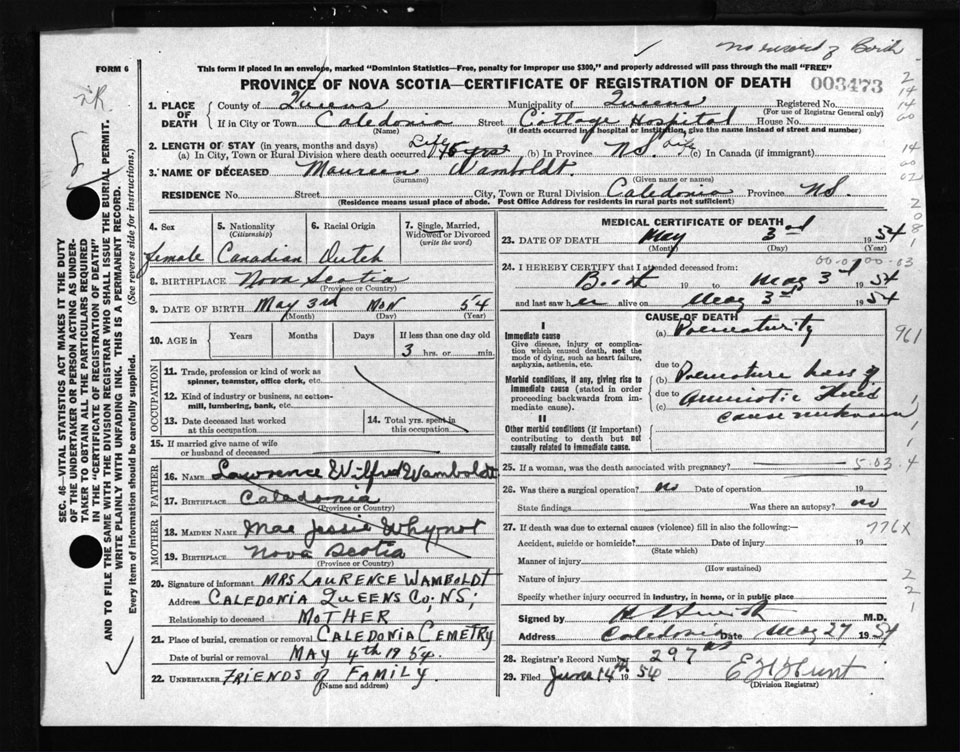 no record of Birth
FORM 6
This form if placed in an envelope, marked "Dominion Statistics—Free, penalty for improper use $300," and properly addressed will pass through the mail "FREE"
PROVINCE OF NOVA SCOTIA—CERTIFICATE OF REGISTRATION OF DEATH 003473
1. PLACE OF DEATH { County of Queens Municipality of Queens Registered No.
(For use of Registrar General only)
If in City or Town Caledonia Street Cottage Hospital House No.
(Name) (If death occurred in a hospital or institution, give the name instead of street and number)
2. LENGTH OF STAY (in years, months and days) Life
(a) In City, Town or Rural Division where death occurred (b) In Province N.S. life (c) In Canada (if immigrant)
3. NAME OF DECEASED Maureen Wamboldt.
(Surname) (Given name or names)
RESIDENCE No. Street City, Town or Rural Division Caledonia Province N.S.
(Residence means usual place of abode. Post Office Address for residents in rural parts not sufficient)
4. Sex 5. Nationality (Citizenship) 6. Racial Origin 7. Single, Married, Widowed or Divorced (write the word)
female Canadian Dutch
8. BIRTHPLACE Nova Scotia
(Province or Country)
9. DATE OF BIRTH May 3rd Mon 54
(Month) (Day) (Year)
10. AGE in Years Months Days If less than one day old
3 hrs. or min.
OCCUPATION
11. Trade, profession or kind of work as spinner, teamster, office clerk, etc.
12. Kind of industry or business, as cotton-mill, lumbering, bank, etc.
13. Date deceased last worked at this occupation 14. Total yrs. spent in this occupation
15. If married give name of wife or husband of deceased
FATHER
16. NAME Lawrence Wilfred Wamboldt
17. BIRTHPLACE Caledonia
MOTHER
18. MAIDEN NAME Mae Jessie Whynot
19. BIRTHPLACE Nova Scotia
(Province or Country)
20. Signature of informant MRS LAURENCE WAMBOLDT
Address CALEDONIA QUEENS CO; N.S;
Relationship to deceased MOTHER
21. Place of burial, cremation or removal CALEDONIA CEMETRY
Date of burial or removal MAY 4th 1954.
22. UNDERTAKER FRIENDS of FAMILY.
(Name and address)
MEDICAL CERTIFICATE OF DEATH
23. DATE OF DEATH May 3rd 1954
(Month) (Day) (Year)
24. I HEREBY CERTIFY that I attended deceased from:
Birth 19 to May 3rd 1954
and last saw her alive on May 3rd 1954
CAUSE OF DEATH
I
Immediate cause
Give disease, injury or complication which caused death, not the mode of dying, such as heart failure, asphyxia, asthenia, etc.
(a) Prematurity
961
due to
Morbid conditions, if any, giving rise to immediate cause (stated in order proceeding backwards from immediate cause).
(b) Premature loss of
due to
(c) Amniotic Fluid
cause unknown
II
Other morbid conditions (if important) contributing to death but not causally related to immediate cause.
25. If a woman, was the death associated with pregnancy? 5.03.4
26. Was there a surgical operation? no Date of operation 19
State findings Was there an autopsy? no
27. If death was due to external causes (violence) fill in also the following:— 776X
Accident, suicide or homicide? Date of injury 19
(State which)
Manner of injury
(How sustained)
Nature of injury
Specify whether injury occurred in industry, in home, or in public place
Signed by M.D.
Address Caledonia Date May 27 1954
28. Registrar's Record Number 297
29. Filed June 14th 1954 Hunt
(Division Registrar)
SEC. 46—VITAL STATISTICS ACT MAKES IT THE DUTY
OF THE UNDERTAKER OR PERSON ACTING AS UNDER-
TAKER TO OBTAIN ALL THE PARTICULARS REQUIRED
IN THE "CERTIFICATE OF REGISTRATION OF DEATH"
AND TO FILE THE SAME WITH THE DIVISION REGISTRAR WHO SHALL ISSUE THE BURIAL PERMIT.
WRITE PLAINLY WITH UNFADING INK. THIS IS A PERMANENT RECORD.
Every item of information should be carefully supplied. (See reverse side for instructions.)